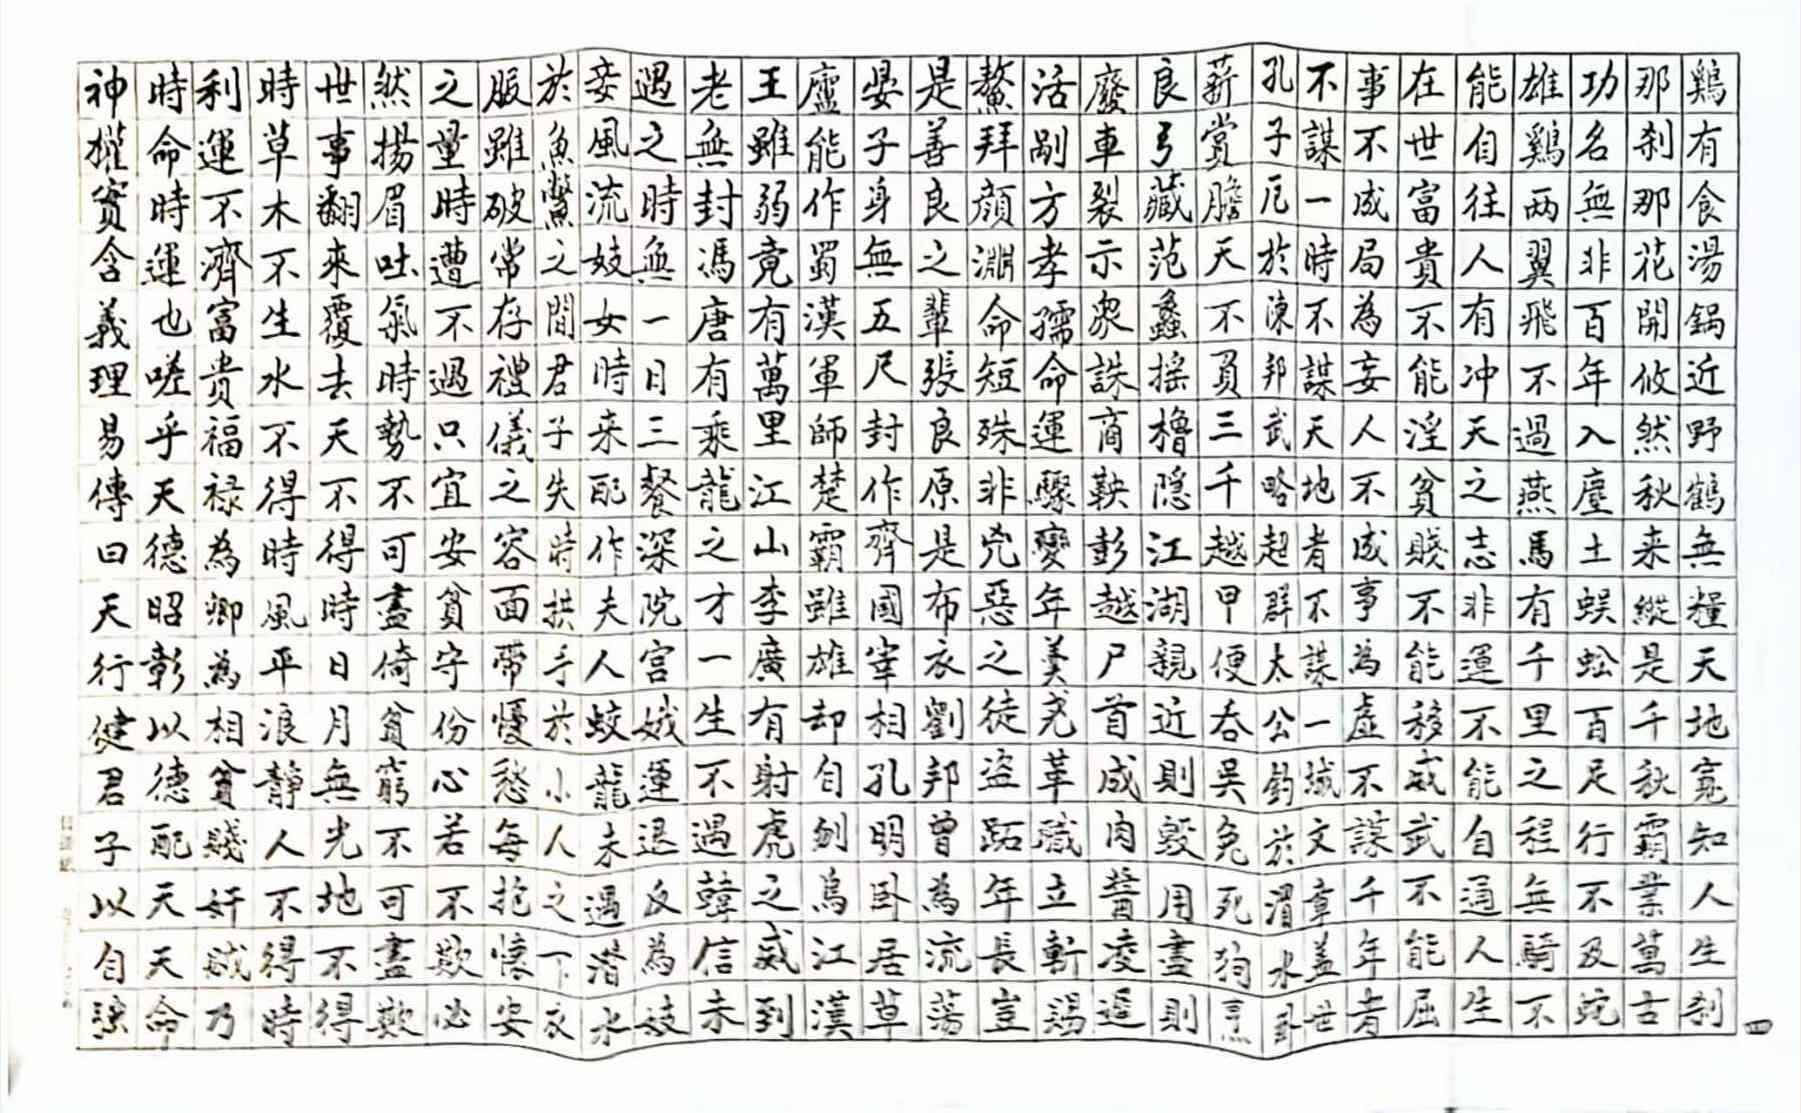 鷄有食湯鍋近野鶴無糧天地寬知人生刹
那刹那花開攸然秋来縱是千秋霸業萬古
功名無非百年入塵土蜈蚣百足行不及蛇
雄鷄兩翼飛不過燕馬有千里之程無騎不
能自往人有冲天之志非運不能自通人生
在世富貴不能淫貧賤不能移威武不能屈
事不成局為妄人不成事為虛不謀千年者
不謀一時不謀天地者不謀一域文章盖世
孔子厄於陳邦武略超群太公釣於渭水卧
薪賞膽天不負三千越甲便吞吳兔死狗烹
良弓藏范蠡搖櫓隱江湖親近則毀用盡則
廢車裂示衆誅商鞅彭越尸首成肉醬凌遲
活剮方孝孺命運驟變年羹尧革職立斬賜
鰲拜顔淵命短殊非兇惡之徒盗跖年長豈
是善良之輩張良原是布衣劉邦曾為流蕩
晏子身無五尺封作齊國宰相孔明卧居草
廬能作蜀漢軍師楚霸雖雄却自刎烏江漢
王雖弱竟有萬里江山李廣有射虎之威到
老無封馮唐有乘龍之才一生不遇韓信未
遇之時無一日三餐深院宮娥運退反為妓
妾風流妓女時来配作夫人蛟龍未遇潜水
於魚鱉之間君子失時拱手於小人之下衣
服雖破常存禮儀之容面帶憂愁每抱懷安
之量時遭不遇只宜安貧守份心若不欺必
然揚眉吐氣時勢不可盡倚貧窮不可盡欺
世事翻來覆去天不得時日月無光地不得
時草木不生水不得時風平浪靜人不得時
利運不濟富貴福禄為卿為相貧賤奸賊乃
時命時運也嗟乎天德昭彰以德配天天命
神權實含義理易傳曰天行健君子以自强
四